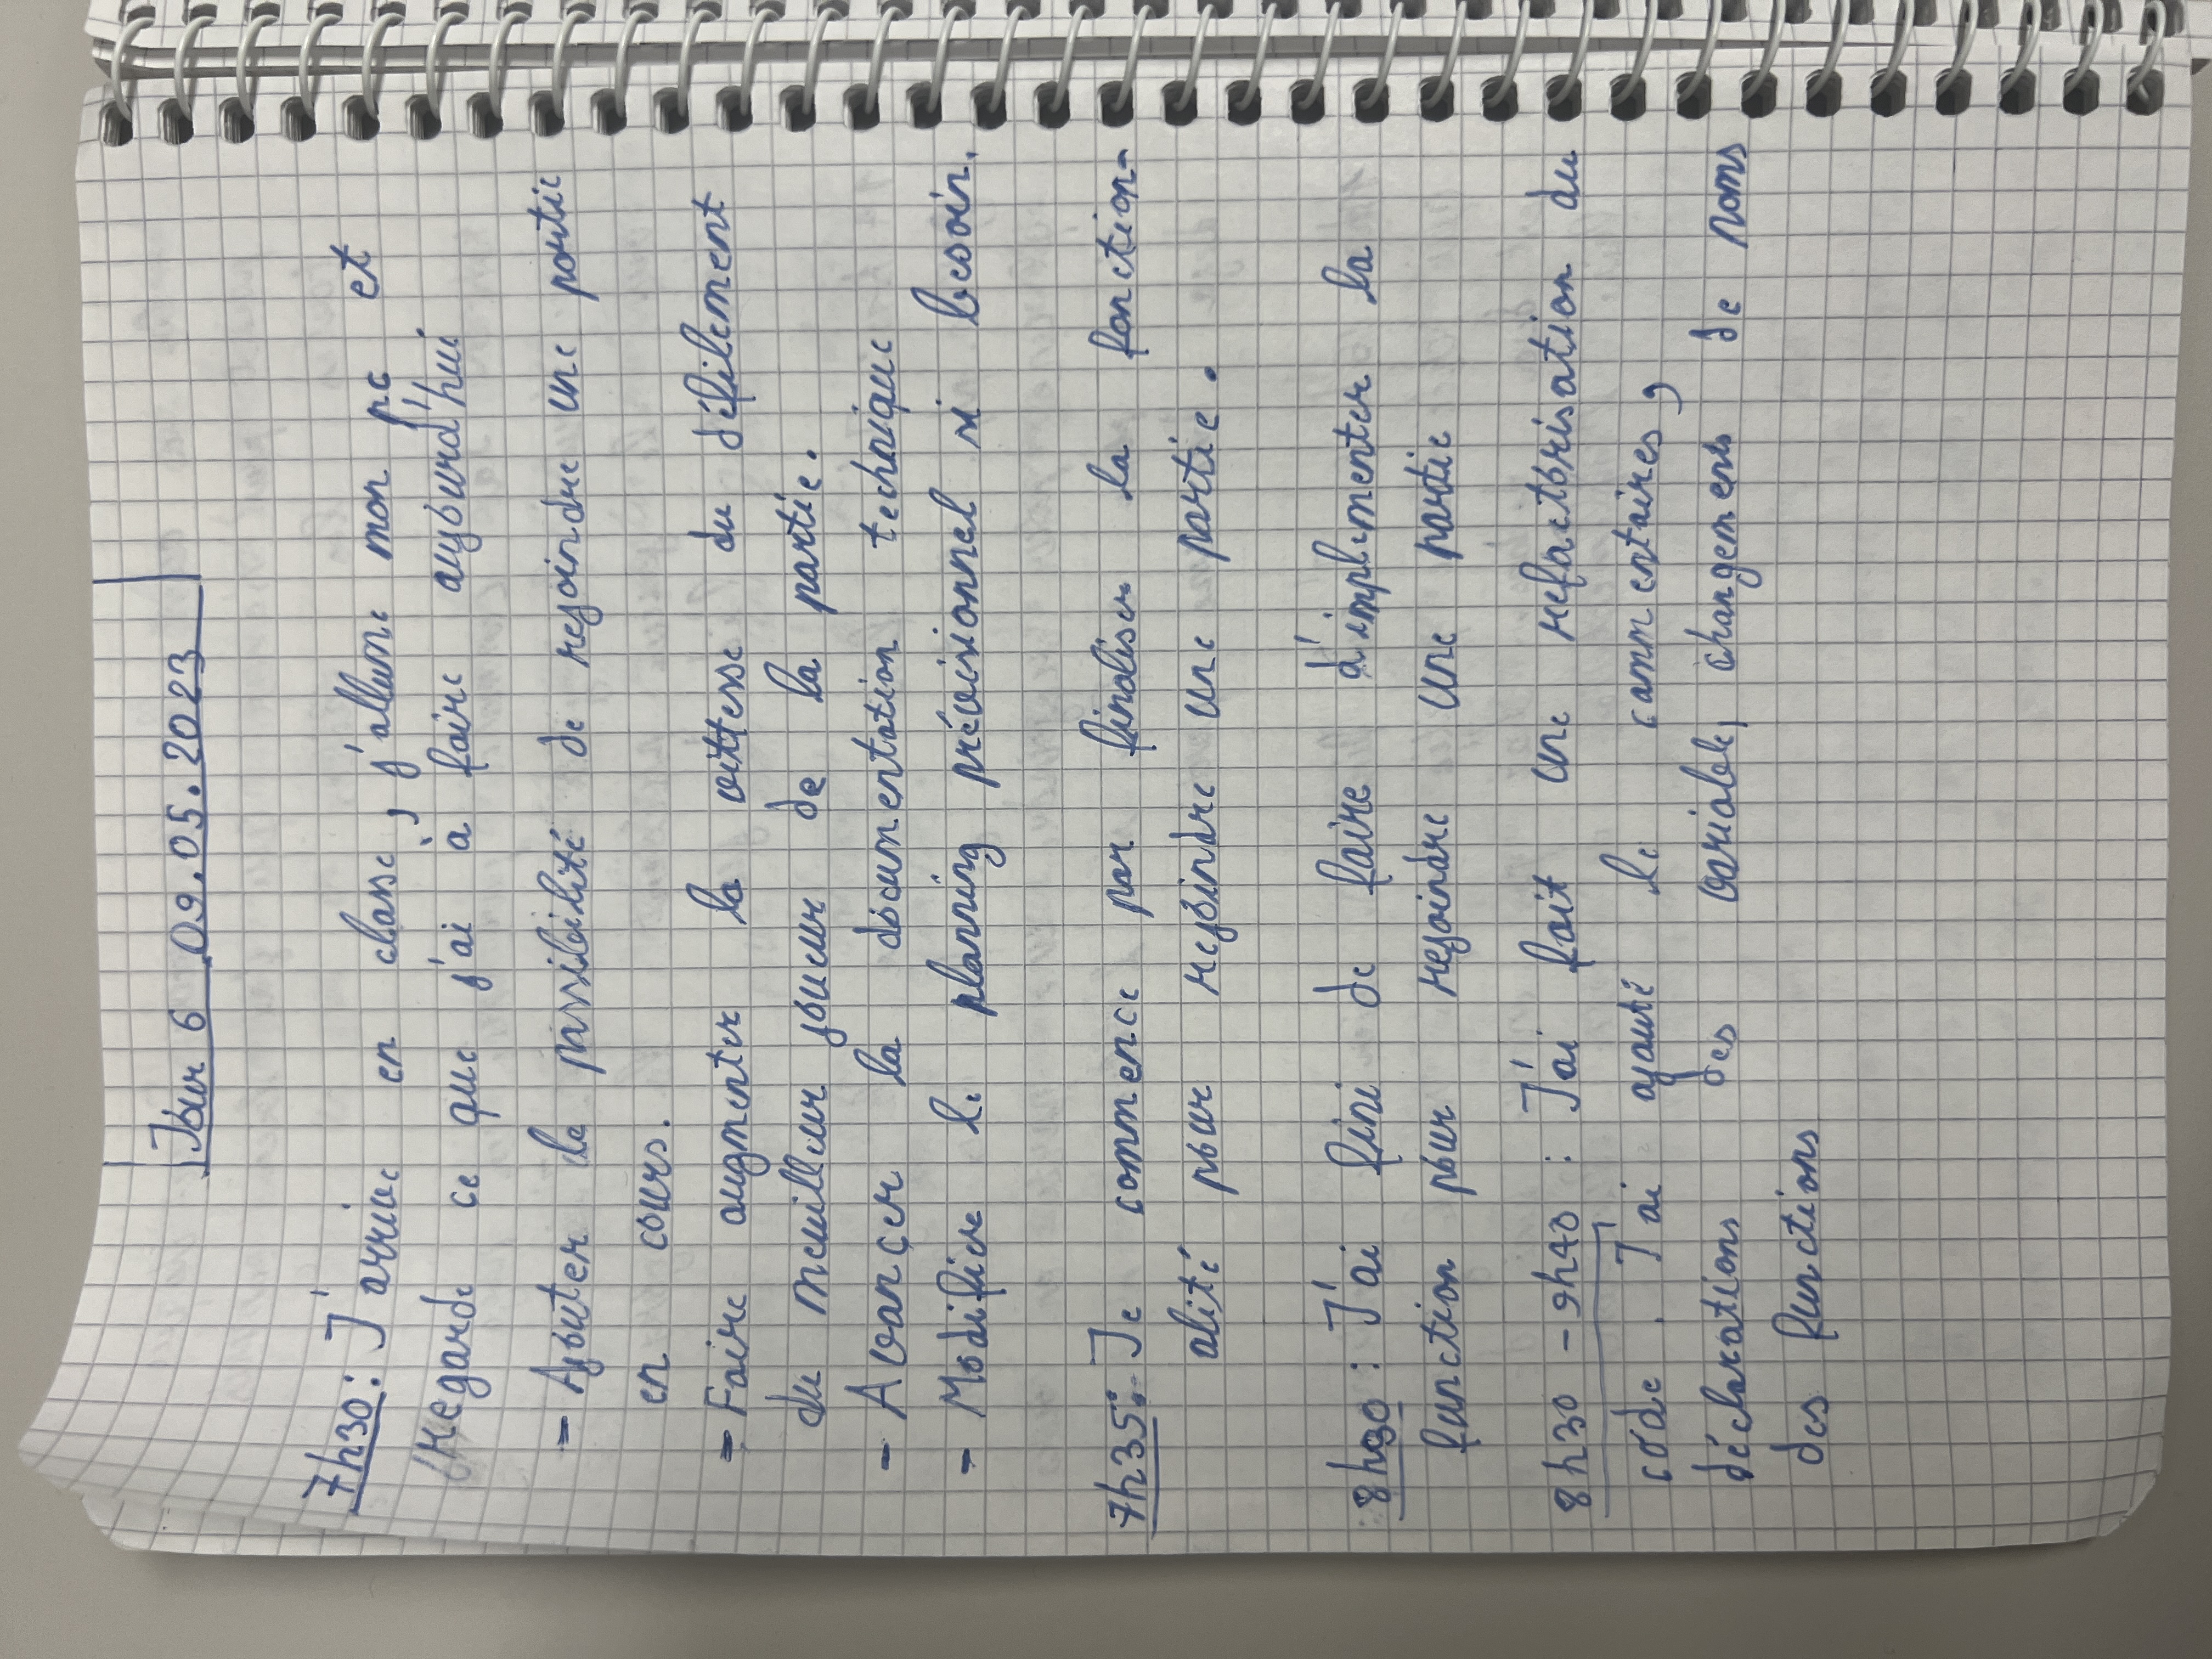 Jour 6 09.05.2023
7h30: J'arrive en classe, j'allume mon pc et
regarde ce que j'ai à faire aujourd'hui
- Ajouter la possibilité de rejoindre une partie
en cours.
- Faire augmenter la vittesse du défilement
du meuilleur joueur de la partie.
- Avançer la documentation technique
- Modifier le planning prévisionnel si besoin.
7h35: Je commence par finaliser la fonction-
alité pour rejoindre une partie.
8h30 : J'ai fini de faire d'implementer la
function pour rejoindre une partie
8h30 - 9h40 : J'ai fait une refactorisation du
code. J'ai ajouté le commentaires,
déclarations des variable, changements de noms
des functions